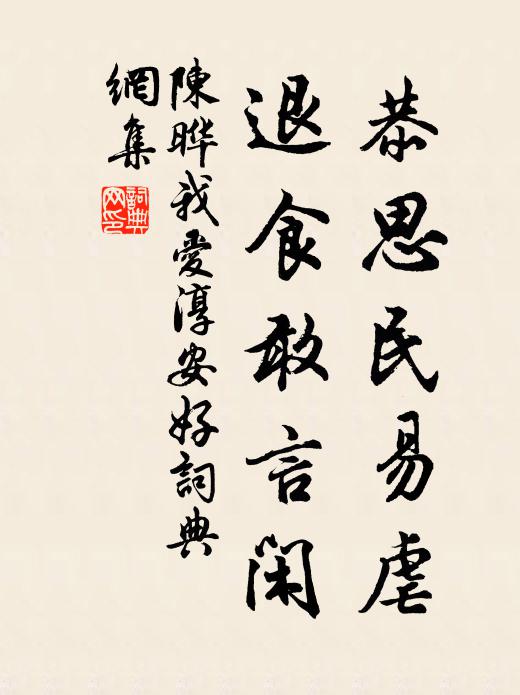 恭思民易虐
退食敢言閑
陳曄我愛淳安好詞典
網集
詞典網印